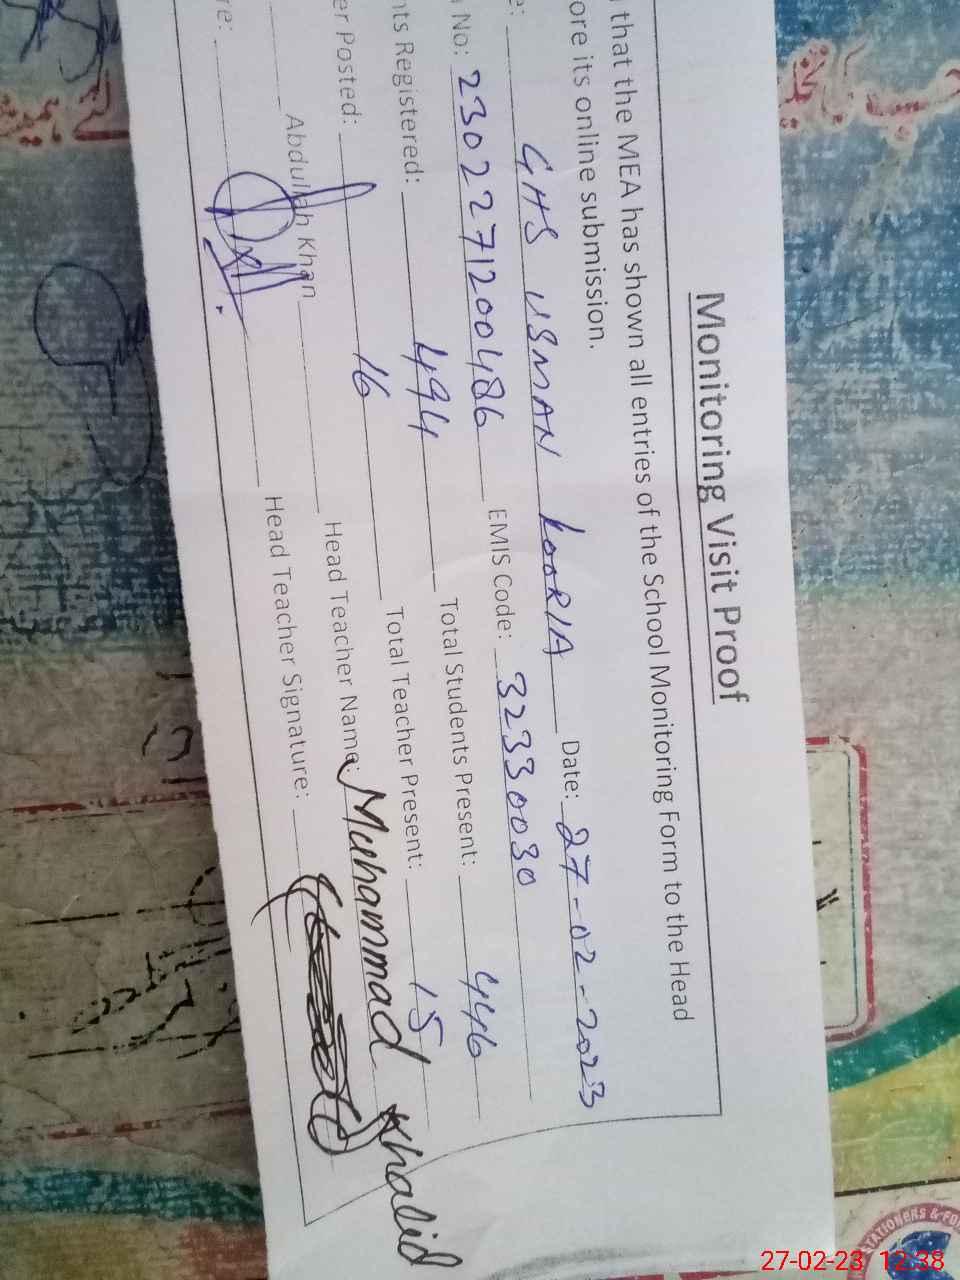 Monitoring Visit Proof
that the MEA has shown all entries of the School Monitoring Form to the Head
ore its online submission.
e: GHS USMAN KOORIA Date: 27-02-2023
No: 2302271200486 EMIS Code: 32330030
nts Registered: 494 Total Students Present: 446
er Posted: 16 Total Teacher Present: 15
Abdullah Khan Head Teacher Name: Muhammad Khalid
re: Head Teacher Signature:
27-02-23 12:38